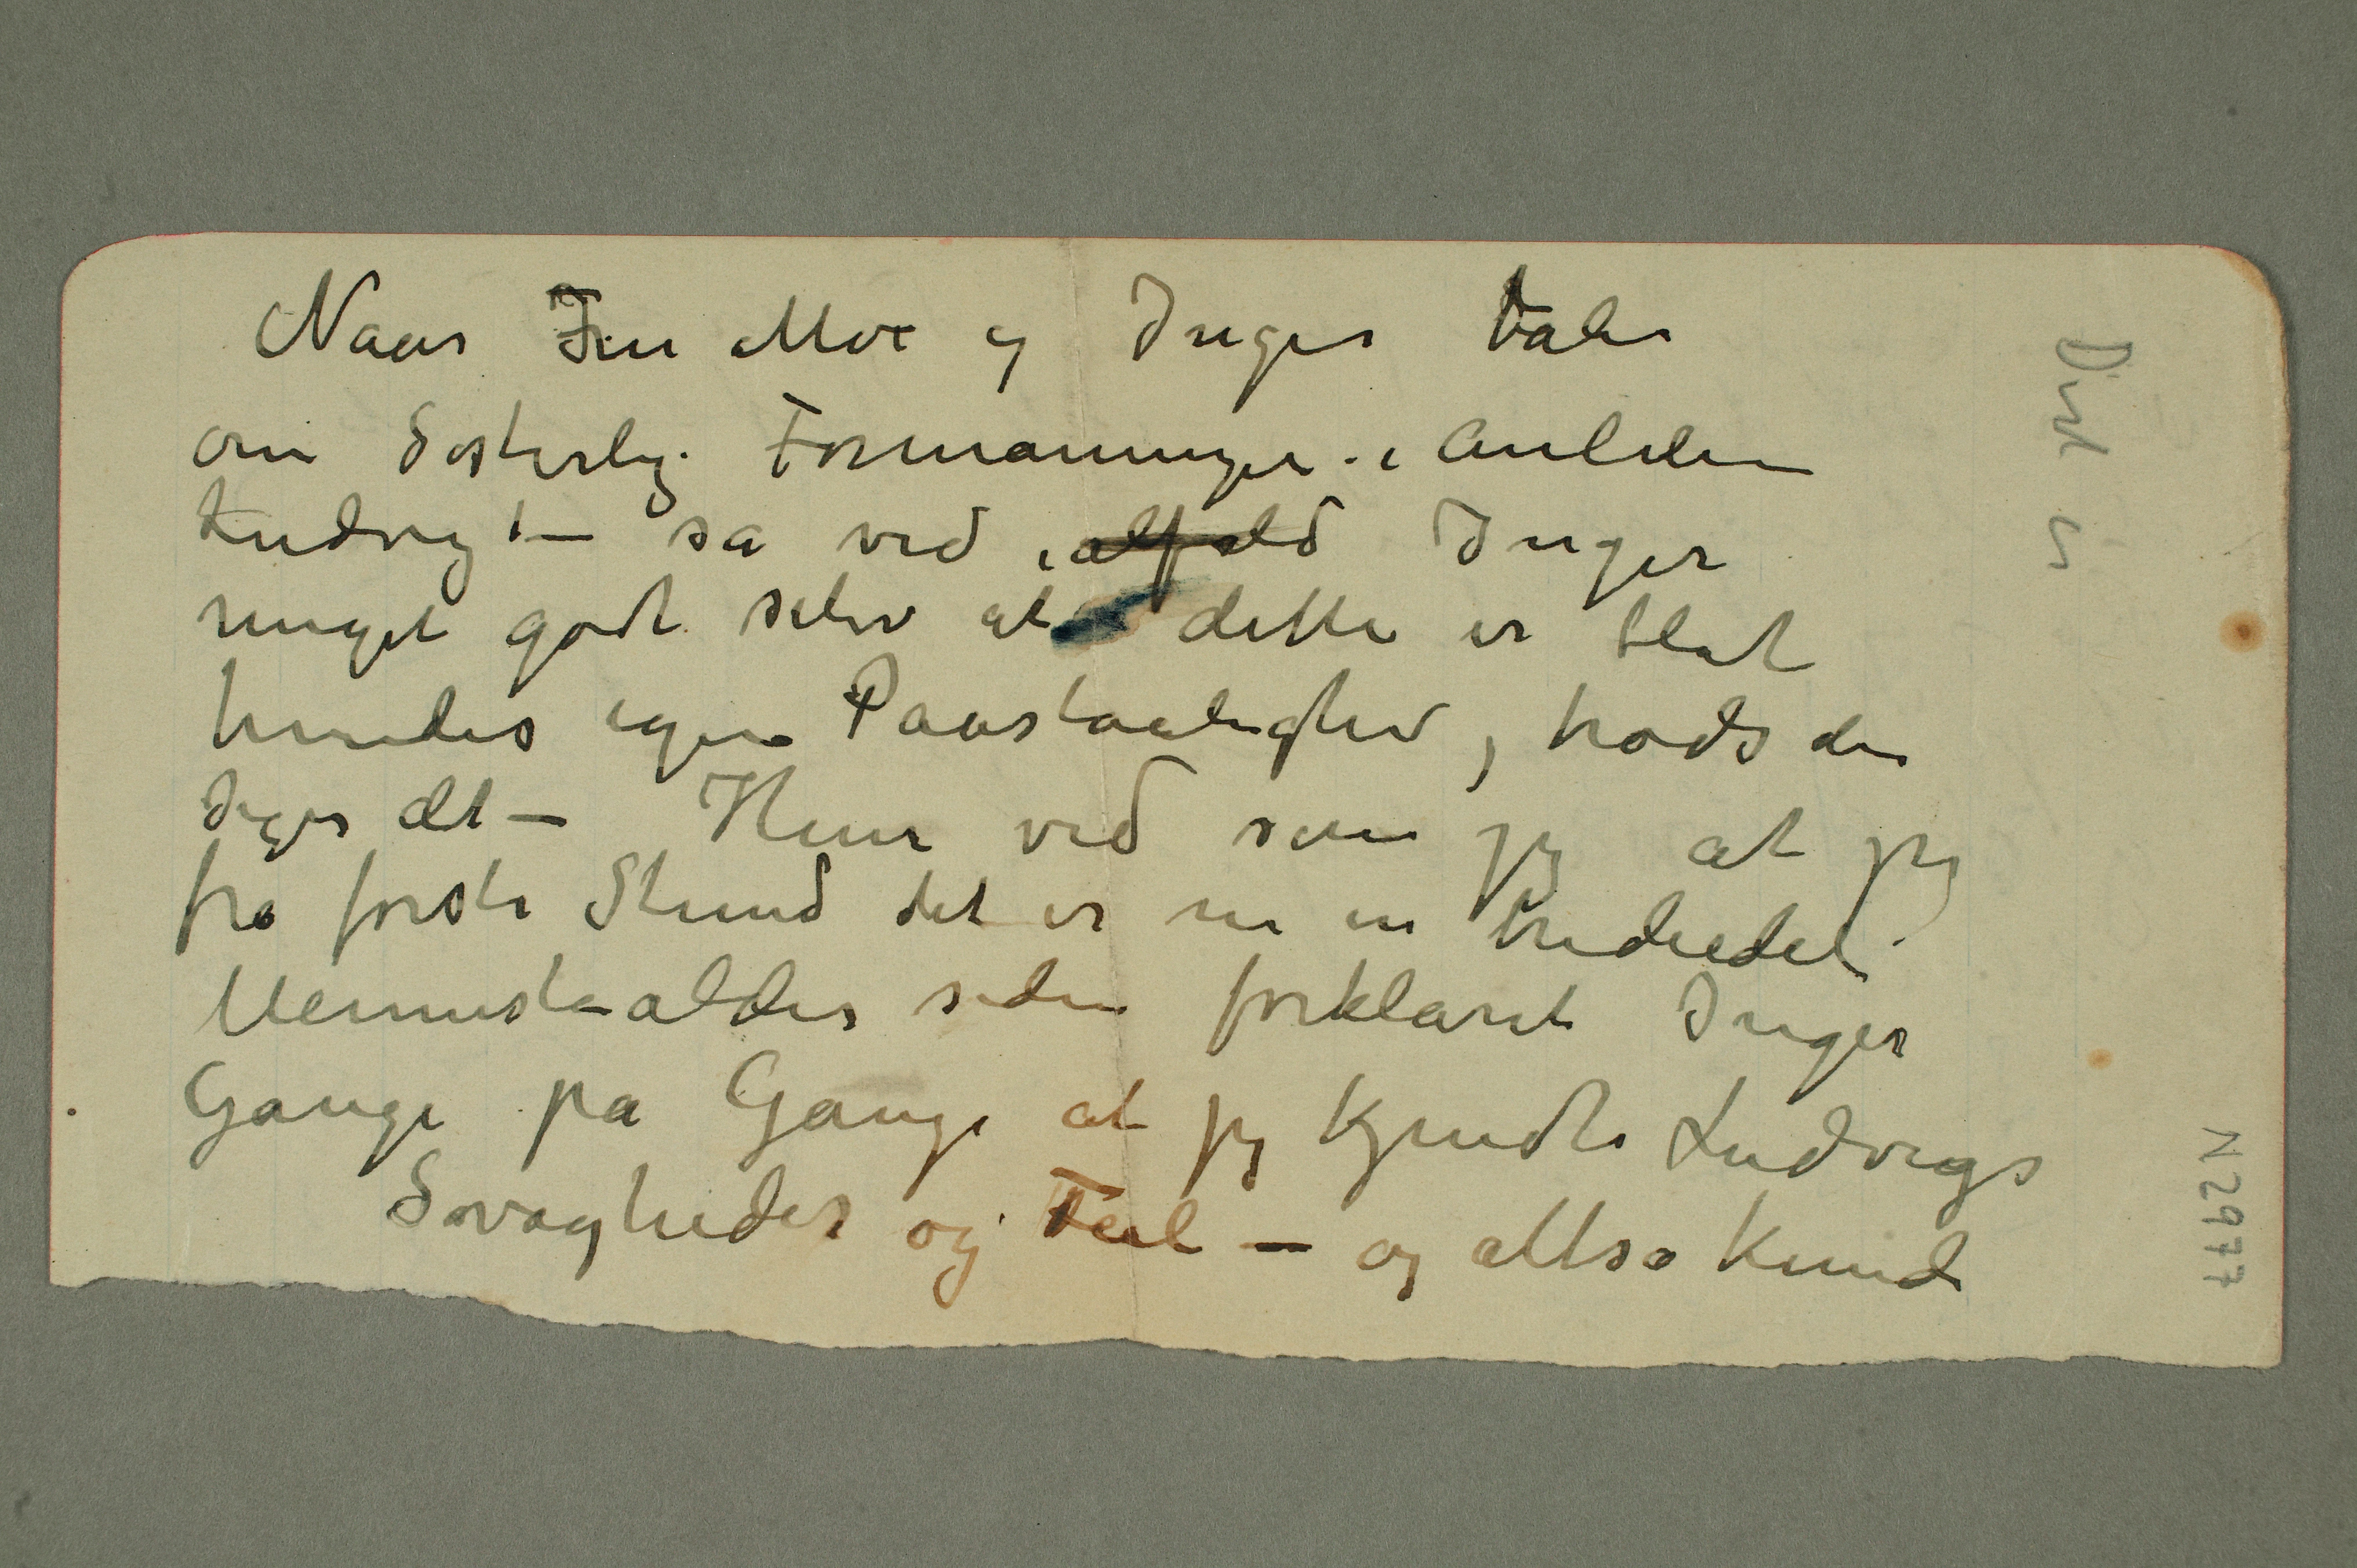 Naar Fru Moe og Inger taler
om Søsterlig Formaninger i Anledn
Ludvig – så ved ialfald Inger
meget godt selv at dette er blot
hendes egen Paastaalighed, trods den
siges det – Hun ved som jeg at jeg
fra første Stund det er nu en trediedel
Menneskealder siden forklaret Inger
Gange på Gange at jeg kjendte Ludvigs
Svagheder og Feil – og altså kund
Det er
N 2977